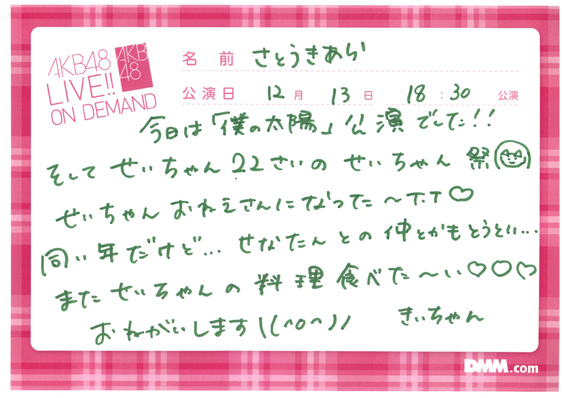 AKB48
LIVE!!
ON DEMAND
AKB
48
名前 さとうきあら
公演日 12月 13日 18:30 公演
今日は「僕の太陽」公演でした!!
そして せいちゃん 22さいの せいちゃん 祭
せいちゃん おねえさんになった〜T.T♡
同い年だけど... せなたんとの仲とかもとうとい...
またせいちゃんの 料理 食べた〜い♡♡♡
おねがいします \(^o^)/ きぃちゃん
DMM.com